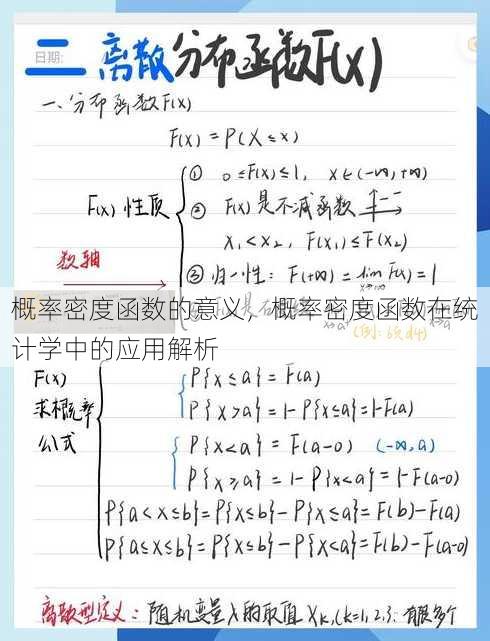 日期:
二 离散分布函数F(x)
一、分布函数F(x)
F(x) = P(X≤x)
① 0≤F(x)≤1, x∈(-∞,+∞)
F(x) 性质
② F(x)是不减函数
x₁<x₂, F(x₁)≤F(x₂)
数轴
③ 归一性: F(+∞)=lim F(x)=1
x→∞
概率密度函数的意义，概率密度函数在统
计学中的应用解析
F(x)
求概率
公式
P{x≤a}=F(a)
P{x>a}=1-P{x≤a}=1-F(a)
P{x<a}=F(a-0) (-∞,a)
P{x≥a}=1-P{x<a}=1-F(a-0)
P{a<x≤b}=P{x≤b}-P{x≤a}=F(b)-F(a)
P{a≤x≤b}=P{x≤b}-P{x<a}=F(b)-F(a-0)
离散型定义: 随机变量X的取值 Xk,(k=1,2,3. 有限多个